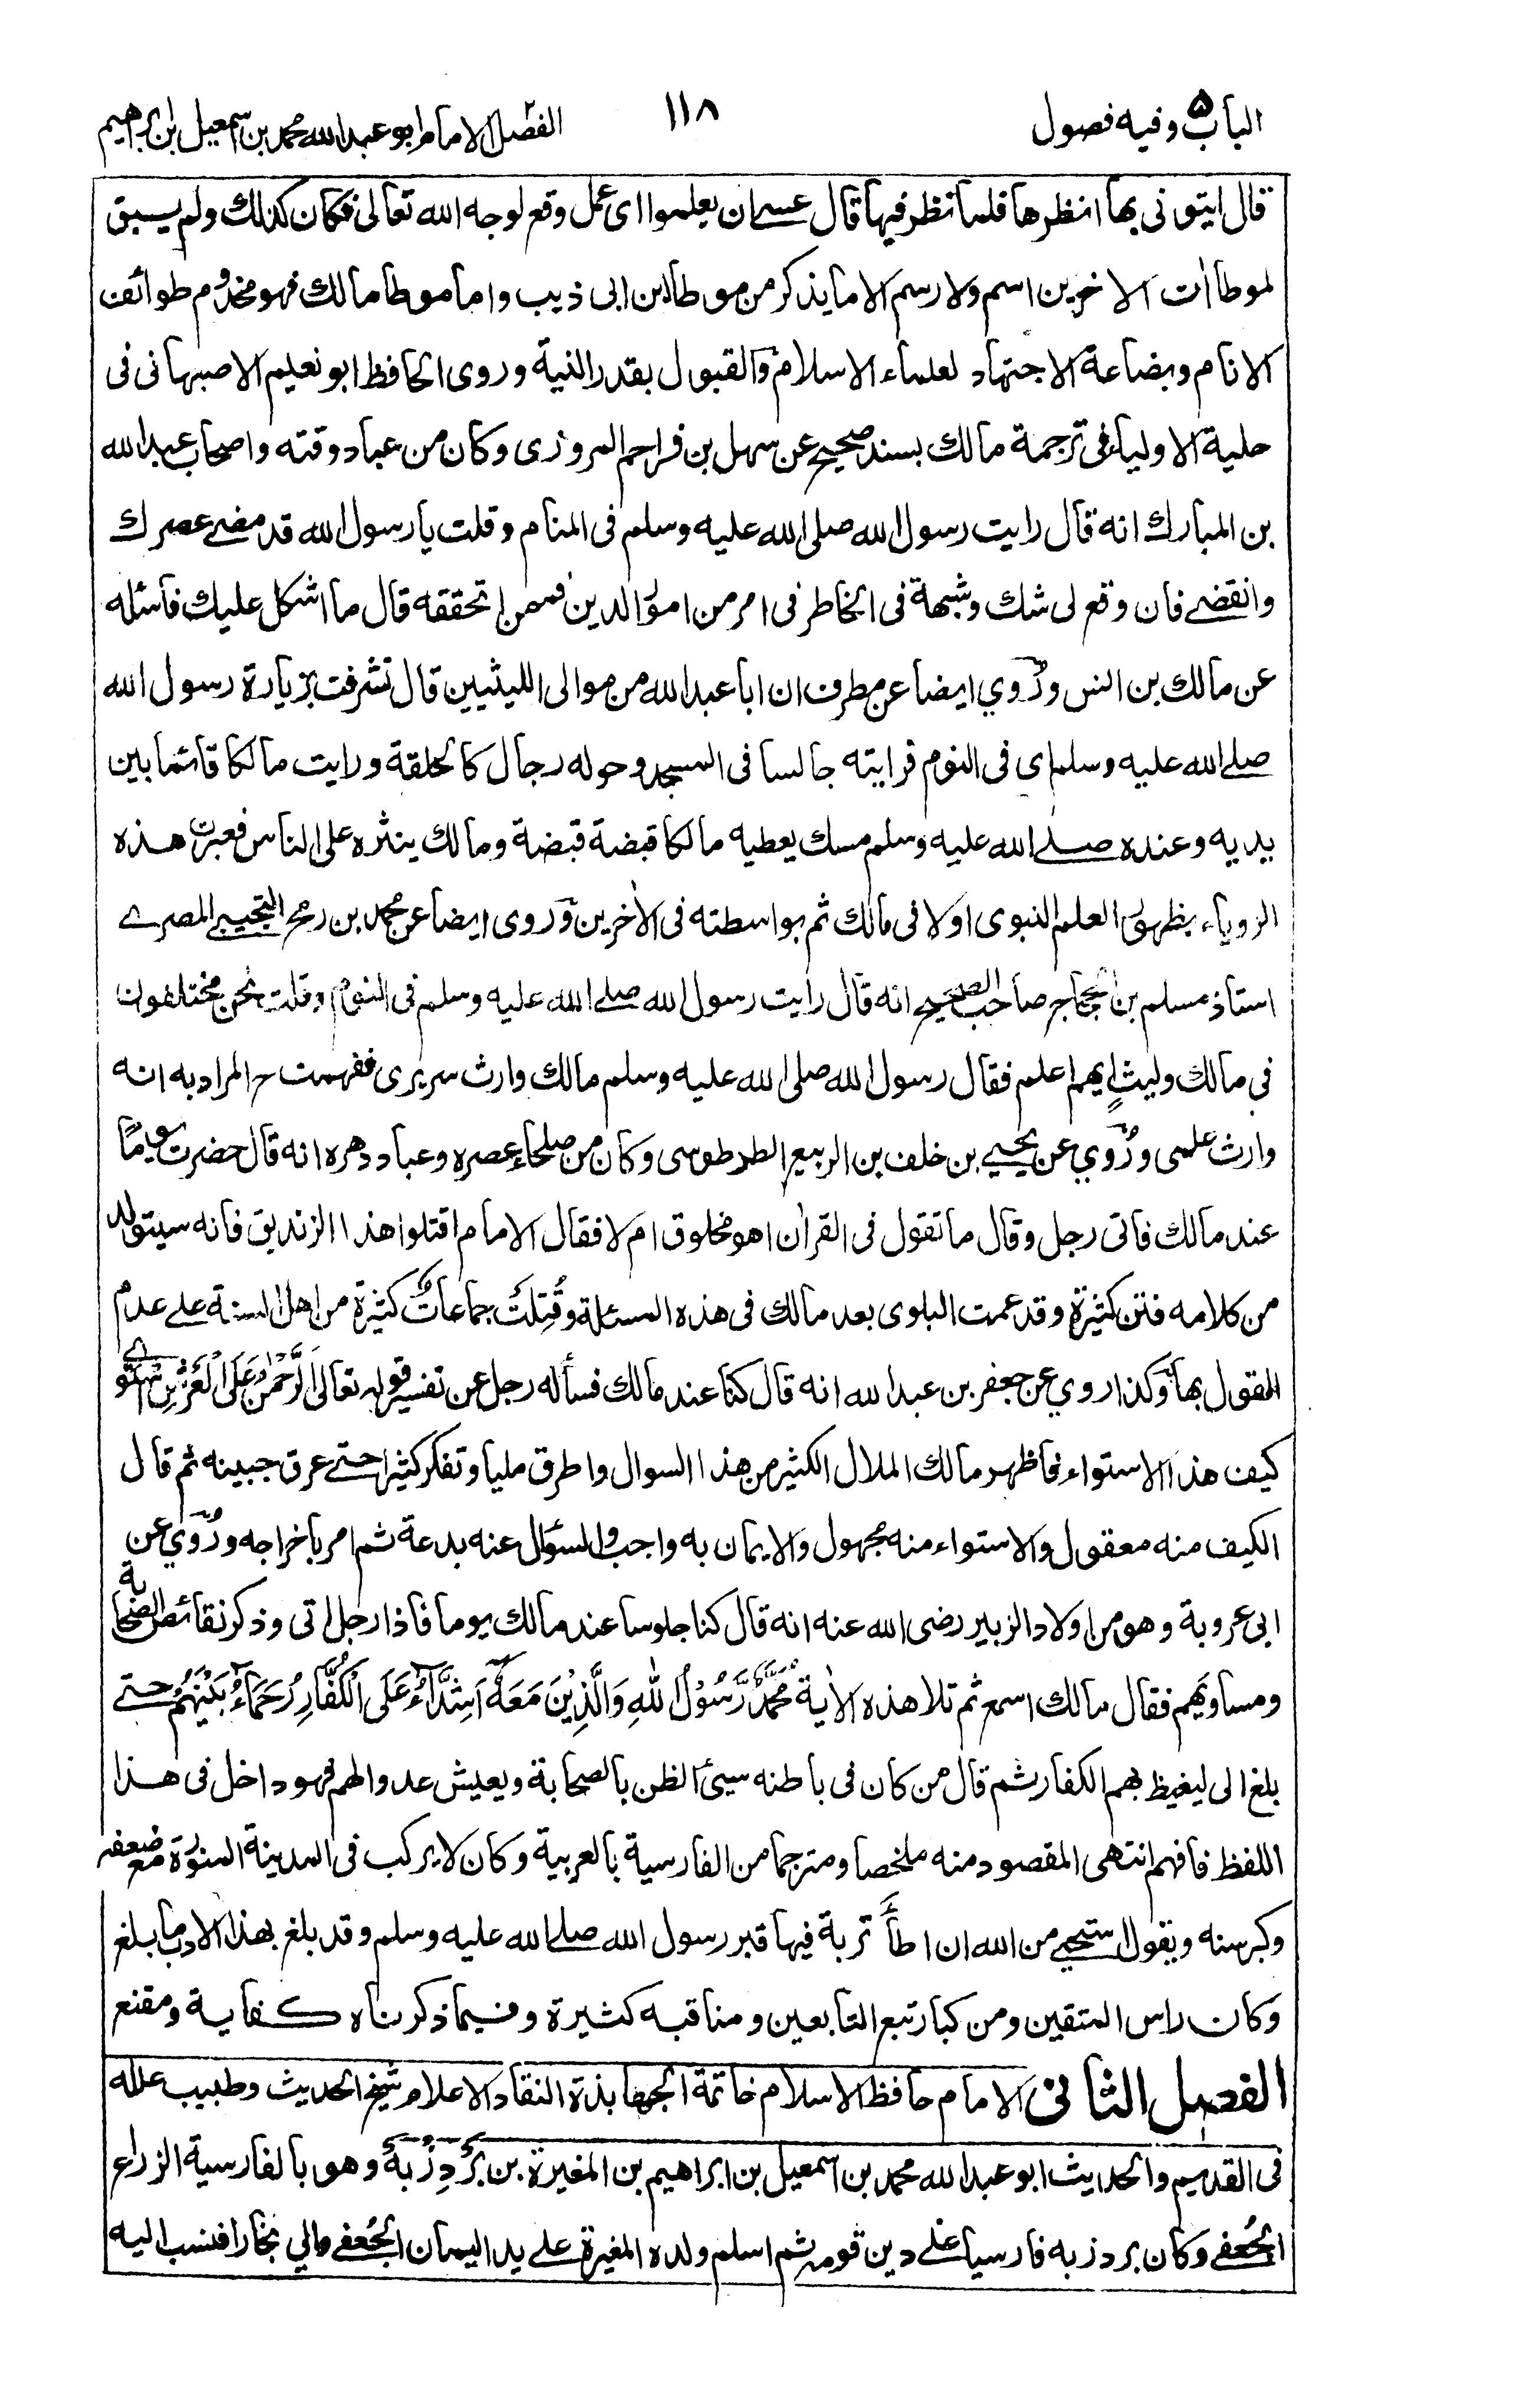 الباب ۵ وفيه فصول
۱۱۸
الفصل ۲ الامام ابو عبد الله محمد بن اسمعيل بن ابراهيم
قال ايتونى بها انظرها فلما نظر فيها قال عسى ان يعلموا اى عمل وقع لوجه الله تعالى فكان كذلك ولم يسبق
لموطاات الاخرين اسم ولا رسم الا ما يذكر من موطا ابن ابى ذيب واما موطا مالك فهو مخدوم طوائف
الانام وبضاعة الاجتهاد لعلماء الاسلام والقبول بقدر النية وروى الحافظ ابو نعيم الاصبهانى فى
حلية الاولياء فى ترجمة مالك بسند صحيح عن سهل بن فراحم المروزى وكان من عباد وقته واصحاب عبد الله
بن المبارك انه قال رايت رسول الله صلى الله عليه وسلم فى المنام وقلت يا رسول الله قد مضى عصرك
وانقضى فان وقع لى شك وشبهة فى الخاطر فى امر من امور الدين فممن اتحققه قال ما اشكل عليك فاسئله
عن مالك بن انس ورُوي ايضا عن مطرف ان ابا عبد الله من موالى الليثيين قال تشرفت بزيارة رسول الله
صلى الله عليه وسلم اى فى النوم فرايته جالسا فى المسجد وحوله رجال كالحلقة ورايت مالكا قائما بين
يديه وعنده صلى الله عليه وسلم مسك يعطيه مالكا قبضة قبضة ومالك ينثره على الناس فعبرت هذه
الروياء بظهور العلم النبوى اولا فى مالك ثم بواسطته فى الاخرين وروى ايضا عن محمد بن رمح التجيبى المصرى
استاذ مسلم بن الحجاج صاحب الصحيح انه قال رايت رسول الله صلى الله عليه وسلم فى النوم وقلت نحن مختلفون
فى مالك وليثٍ ايهما اعلم فقال رسول الله صلى الله عليه وسلم مالك وارث سريرى ففهمت ح المراد به انه
وارث علمى ورُوي عن يحيى بن خلف بن الربيع الطرطوسى وكان من صلحاء عصره وعباد دهره انه قال حضرت يومًا
عند مالك فاتى رجل وقال ما تقول فى القرآن اهو مخلوق ام لا فقال الامام اقتلوا هذا الزنديق فانه سيتولد
من كلامه فتن كثيرة وقد عمت البلوى بعد مالك فى هذه المسئلة وقُتِلَت جماعاتٌ كثيرة من اهل السنة على عدم
المقول بها وكذا روي عن جعفر بن عبد الله انه قال كنا عند مالك فسأله رجل عن تفسير قوله تعالى اَلرَّحْمٰنُ عَلَى الْعَرْشِ اسْتَوٰى
كيف هذا الاستواء فاظهر مالك الملال الكثير من هذا السوال واطرق مليا وتفكر كثيرا حتى عرق جبينه ثم قال
الكيف منه معقول والاستواء منه مجهول والايمان به واجب والسؤال عنه بدعة ثم امر باخراجه ورُوي عن
ابى عروبة وهو من اولاد الزبير رضى الله عنه انه قال كنا جلوسا عند مالك يوما فاذا رجل اتى وذكر نقائص الصحابة
ومساويهم فقال مالك اسمع ثم تلا هذه الآية مُحَمَّدٌ رَّسُوْلُ اللهِ وَالَّذِيْنَ مَعَهٗ اَشِدَّآءُ عَلَى الْكُفَّارِ رُحَمَآءُ بَيْنَهُمْ حتى
بلغ الى ليغيظ بهم الكفار ثم قال من كان فى باطنه سيئ الظن بالصحابة ويعيش عدوا لهم فهو داخل فى هذا
اللفظ فافهم انتهى المقصود منه ملخصا ومترجما من الفارسية بالعربية وكان لا يركب فى المدينة المنورة مع ضعفه
وكبر سنه ويقول استحيى من الله ان اطأ تربة فيها قبر رسول الله صلى الله عليه وسلم وقد بلغ بهذا الادب ما بلغ
وكان راس المتقين ومن كبار تبع التابعين ومناقبه كثيرة وفيما ذكرناه كفاية ومقنع
الفصل الثانى الامام حافظ الاسلام خاتمة الجهابذة النقاد الاعلام شيخ الحديث وطبيب علله
فى القديم والحديث ابو عبد الله محمد بن اسمعيل بن ابراهيم بن المغيرة بن بَرْدِزْبَهْ وهو بالفارسية الزراع
الجُعفى وكان بردزبه فارسيا على دين قومه ثم اسلم ولده المغيرة على يد اليمان الجُعفى والي بخارا فنسب اليه